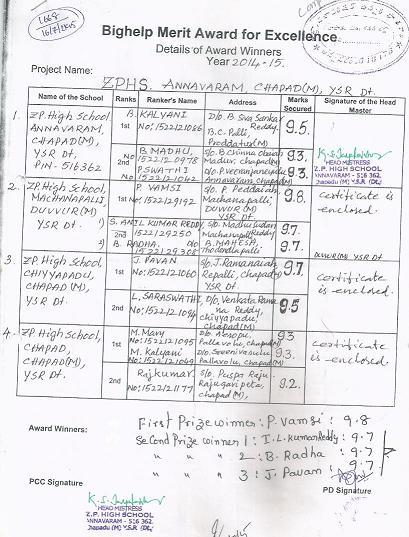 1668
16/7/2015
Bighelp Merit Award for Excellence
Details of Award Winners
Year 2014-15.
Project Name: ZPHS. ANNAVARAM, CHAPAD(M), YSR Dt.
Name of the School Ranks Ranker's Name Address Marks Secured Signature of the Head Master
1. Z.P. High School, ANNAVARAM, CHAPAD(M), YSR Dt. PIN- 516362
1st B. KALYANI No: 1522121066 D/o. B. Siva Sankar Reddy, B.C. Palli, Proddatur(M) 9.5.
No 2nd B. MADHU, 1522120978 Madur, chapad(M) 9.3.
No P. SWATHI 1522121042 Annavaram, Chapad(M) 9.3.
HEAD MISTRESS
Z.P. HIGH SCHOOL
ANNAVARAM - 516 362
2. Z.P. High School, MACHANAPALLI, DUVVUR(M) YSR Dt.
1st P. VAMSI No: 152212 9192 P. Peddaiah Machanapalli, DUVVUR(M) YSR Dt. 9.8. certificate is enclosed.
1) S. ANIL KUMAR REDDY 2nd 1522129250 S/o. Madhusudan Machanapalli Reddy 9.7.
2) B. RADHA. D/o 1522129308 B. MAHESH, Thodladipalli 9.7.
DUVVUR(M) YSR Dt
3. Z.P. High School CHIYYAPADU, CHAPAD(M), YSR Dt.
1st J. PAVAN No: 1522121060 S/o. J. Ramanaiah Repalli, chapad(M) YSR Dt. 9.7. certificate is enclosed.
2nd L. SARASWATHI No: 1522121094 D/o, Venkata Ramana Reddy, chiyyapadu, chapad(M) 9.5
4. Z.P. High School, CHAPAD, CHAPAD(M), YSR Dt.
1st M. Mary No: 1522121095 Pallavolu, chapad(M) 9.3
M. Kalyani No: 1522121069 D/o. Sreenivasulu Pallavolu, chapad(M) 9.3. certificate is enclosed.
2nd Raj kumar No: 1522121177 S/o. Puspa Raju Rajugaripeta, chapad(M), 9.2.
Award Winners:
First Prize winner: P. Vamsi : 9.8
Second Prize winner 1: I.L. kumar Reddy: 9.7
" " " 2: B. Radha : 9.7
" " " 3: J. Pavan : 9.7
PCC Signature PD Signature
HEAD MISTRESS
Z.P. HIGH SCHOOL
ANNAVARAM - 516 362.
Chapadu (M) Y.S.R (Dt.)